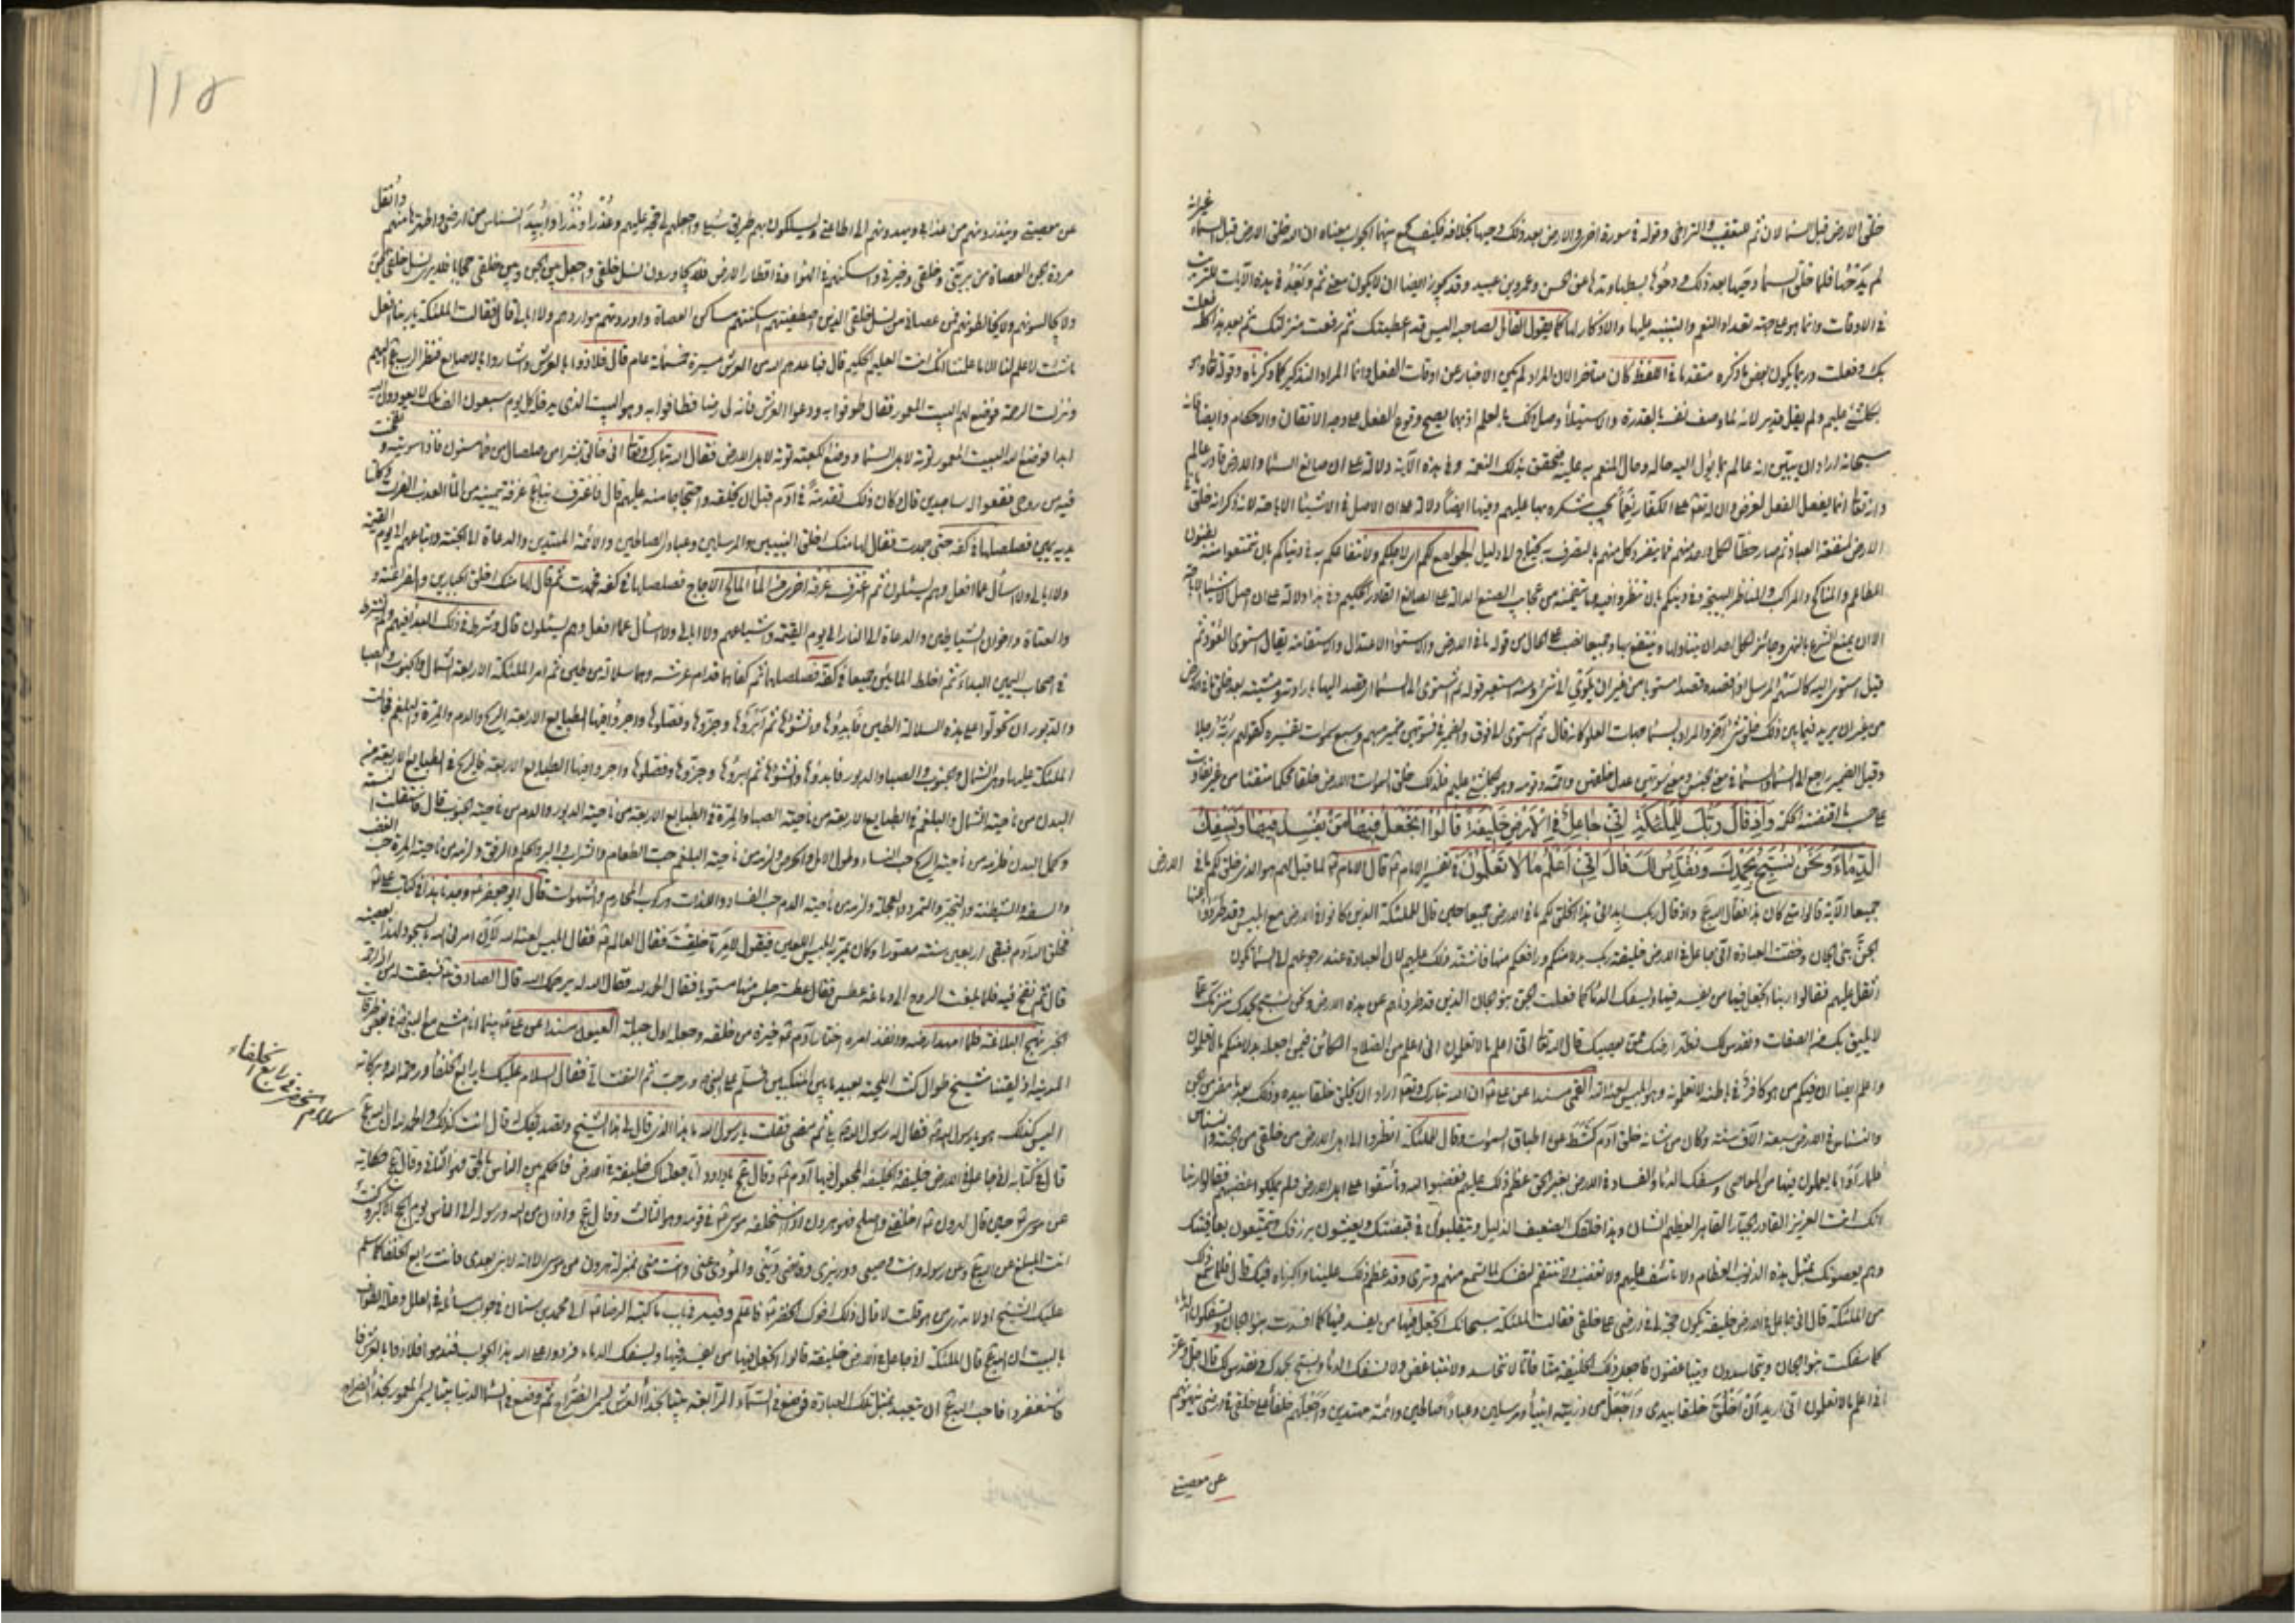 خلق الارض قبل السماء لان ثم للتعقيب والتراخي وقوله في سورة اخرى والارض بعد ذلك دحيها بخلافه فكيف يجمع بينهما الجواب معناه ان الله خلق الارض قبل السماء
غير انه
لم يدحها فلما خلق السماء دحيها بعد ذلك ودحوها بسطها ومدها عن الحسن وعمرو بن عبيد وقد يجوز ايضا ان لا يكون معنى ثم وبعد في هذه الآيات للترتيب
في الاوقات وانما هو على جهة تعداد النعم والتنبيه عليها والاذكار لها كما يقول القائل لصاحبه اليس قد اعطيتك ثم رفعت منزلتك ثم بعد هذا كله فعلت
بك وفعلت وربما يكون بعض ما ذكره متقدما في اللفظ كان متأخرا لان المراد لم يكن الاخبار عن اوقات الفعل وانما المراد التذكير كما ذكرناه وقوله تعالى وهو
بكل شيء عليم ولم يقل قدير لانه لما وصف نفسه بالقدرة والاستيلاء وصل ذلك بالعلم اذ بهما يصح وقوع الفعل على وجه الاتقان والاحكام وايضا فانه
سبحانه اراد ان يبين انه عالم بما يؤل اليه حاله وحال المنعم به عليه فتحقق بذلك النعمة وفي هذه الآية دلالة على ان صانع السماء والارض قادر عالم
وانه تعالى انما يفعل الفعل لغرض وان له تعالى على الكفار نعما يجب شكره بها عليهم وفيها ايضا دلالة على ان الاصل في الاشياء الاباحة لانه ذكر انه خلق ما في
الارض لمنفعة العباد ثم صار حظا لكل واحد منهم فما يتفرد كل منهم بالتصرف به يحتاج الى دليل الجوامع لكم اي لاجلكم ولانتفاعكم به في دنياكم بان تتمتعوا منه بفنون
المطاعم والمناكح والمراكب والمناظر البهيجة وفي دينكم بان تنظروا فيه وما يتضمنه من عجايب الصنع الدالة على الصانع القادر الحكيم وفي هذا دلالة على ان اصل الاشياء الاباحة
الا ان يمنع الشرع بالنهي وجائز لكل احد ان يتناولها وينتفع بها وجميعا نصب على الحال من قوله ما في الارض والاستواء الاعتدال والاستقامة يقال استوى العود ثم
قيل استوى اليه كالسهم المرسل اذا قصده قصدا مستويا من غير ان يلوي الى شيء ومنه استعير قوله ثم استوى الى السماء اي قصد اليها بارادته ومشيته بعد خلق ما في الارض
من غير ان يريد فيما بين ذلك خلق شيء آخر والمراد بالسماء جهات العلو كانه قال ثم استوى الى فوق والضمير في فسويهن ضمير مبهم وسبع سموات تفسيره كقولهم ربه رجلا
وقيل الضمير راجع الى السماء والسماء في معنى الجنس ومعنى سويهن عدل خلقهن واتمه وقومه وهو بكل شيء عليم فلذلك خلق السموات والارض خلقا محكما متقنا من غير تفاوت
على حسب ما اقتضته الحكمة وَإِذْ قَالَ رَبُّكَ لِلْمَلٰئِكَةِ إِنِّي جَاعِلٌ فِي الْأَرْضِ خَلِيفَةً قَالُوا أَتَجْعَلُ فِيهَا مَنْ يُفْسِدُ فِيهَا وَيَسْفِكُ
الدِّمَاءَ وَنَحْنُ نُسَبِّحُ بِحَمْدِكَ وَنُقَدِّسُ لَكَ قَالَ إِنِّي أَعْلَمُ مَا لَا تَعْلَمُونَ في تفسير الامام ع قال الامام ع لما قيل لهم هو الذي خلق لكم ما في الارض
جميعا الآية قالوا متى كان هذا فقال الله ع واذ قال ربك ابدائي هذا الخلق لكم ما في الارض جميعا حين قال للملئكة الذين كانوا في الارض مع ابليس وقد طردوا عنها
الجن بني الجان وخفت العبادة اني جاعل في الارض خليفة بدلا منكم ورافعكم منها فاشتد ذلك عليهم لان العبادة عند رجوعهم الى السماء تكون
اثقل عليهم فقالوا ربنا اتجعل فيها من يفسد فيها ويسفك الدماء كما فعلت الجن بنو الجان الذين قد طردناهم عن هذه الارض ونحن نسبح بحمدك ننزهك عما
لا يليق بك من الصفات ونقدس لك نطهر ارضك ممن يعصيك قال الله تعالى اني اعلم ما لا تعلمون اني اعلم من الصلاح الكائن فيمن اجعله بدلا منكم ما لا تعلمون
واعلم ايضا ان فيكم من هو كافر في باطنه لا تعلمونه وهو ابليس لعنه الله القمي مسندا عن علي ع ان الله تبارك وتعالى اراد ان يخلق خلقا بيده وذلك بعد ما مضى من الجن
والنسناس في الارض سبعة آلاف سنة وكان من شانه خلق آدم كشط عن اطباق السموات وقال للملئكة انظروا الى اهل الارض من خلقي من الجن والنسناس
فلما رأوا ما يعملون فيها من المعاصي وسفك الدماء والفساد في الارض بغير الحق عظم ذلك عليهم فغضبوا لله وتأسفوا على اهل الارض فلم يملكوا غضبهم فقالوا ربنا
انك انت العزيز القادر الجبار القاهر العظيم الشان وهذا خلقك الضعيف الذليل ويتقلبون في قبضتك ويعيشون برزقك ويتمتعون بعافيتك
وهم يعصونك بمثل هذه الذنوب العظام ولا تأسف عليهم ولا تغضب ولا تنتقم لنفسك لما تسمع منهم وترى وقد عظم ذلك علينا واكبرناه فيك قال فلما سمع ذلك
من الملئكة قال اني جاعل في الارض خليفة يكون حجة لي في ارضي على خلقي فقالت الملئكة سبحانك اتجعل فيها من يفسد فيها كما افسدت بنو الجان ويسفكون الدماء
كما سفكت بنو الجان ويتحاسدون ويتباغضون فاجعل ذلك الخليفة منا فانا لا نتحاسد ولا نتباغض ولا نسفك الدماء ونسبح بحمدك ونقدس لك قال جل وعز
اني اعلم ما لا تعلمون اني اريد ان اخلق خلقا بيدي واجعل من ذريته انبياء ومرسلين وعبادا صالحين وائمة مهتدين واجعلهم خلفاء على خلقي في ارضي ينهونهم
عن معصيتي
١١٥
عن معصيتي وينذرونهم من عذابي ويهدونهم الى طاعتي ويسلكون بهم طريق سبيلي واجعلهم لي حجة عليهم وعذرا ونذرا وابيد النسناس من ارضي واطهرها منهم وانقل
مردة الجن العصاة من بريتي وخلقي وخيرتي واسكنهم في الهواء وفي اقطار الارض فلا يجاورون نسل خلقي واجعل بين الجن وبين خلقي حجابا فلا يرى نسل خلقي الجن
ولا يجالسونهم ولا يخالطونهم فمن عصاني من نسل خلقي الذين اصطفيتهم اسكنتهم مساكن العصاة واوردتهم مواردهم ولا ابالي قال فقالت الملئكة يا ربنا افعل
ما شئت لا علم لنا الا ما علمتنا انك انت العليم الحكيم قال فباعدهم الله من العرش مسيرة خمسمائة عام قال فلاذوا بالعرش واشاروا بالاصابع فنظر الرب ع اليهم
ونزلت الرحمة فوضع لهم البيت المعمور فقال طوفوا به ودعوا العرش فانه لي رضا فطافوا به وهو البيت الذي يدخله كل يوم سبعون الف ملك لا يعودون اليه
ابدا فوضع الله البيت المعمور توبة لاهل السماء ووضع الكعبة توبة لاهل الارض فقال الله تبارك وتعالى اني خالق بشرا من صلصال من حمأ مسنون فاذا سويته ونفخت
فيه من روحي فقعوا له ساجدين قال كان ذلك تقدمة في آدم قبل ان يخلقه واحتجاجا منه عليهم قال فاغترف ربنا ع غرفة بيمينه من الماء العذب الفرات وكلتا
يديه يمين فصلصلها في كفه حتى جمدت فقال لها منك اخلق النبيين والمرسلين وعبادي الصالحين والائمة المهتدين والدعاة الى الجنة واتباعهم الى يوم القيمة
ولا ابالي ولا اسأل عما افعل وهم يسئلون ثم اغترف غرفة اخرى من الماء المالح الاجاج فصلصلها في كفه فجمدت ثم قال لها منك اخلق الجبارين والفراعنة و
والعتاة واخوان الشياطين والدعاة الى النار الى يوم القيمة واشياعهم ولا ابالي ولا اسأل عما افعل وهم يسئلون قال وشرط في ذلك البداء فيهم ولم يشترط
في اصحاب اليمين البداء ثم اخلط المائين جميعا في كفه فصلصلها ثم كفاهما قدام عرشه وهما سلالة من طين ثم امر الملئكة الاربعة الشمال والجنوب والصبا
والدبور ان يجولوا على هذه السلالة الطين فابدؤها وانشؤها ثم ابرؤها وجزوها وفصلوها واجروا فيها الطبايع الاربعة الريح والدم والمرة والبلغم فجالت
الملئكة عليها وهي الشمال والجنوب والصبا والدبور فابدؤها وانشؤها ثم ابرؤها وجزوها وفصلوها واجروا فيها الطبايع الاربعة فالريح في الطبايع الاربعة من
البدن من ناحية الشمال والبلغم في الطبايع الاربعة من ناحية الصبا والمرة في الطبايع الاربعة من ناحية الدبور والدم من ناحية الجنوب قال فاستقلت النسمة
وكمل البدن فلزمه من ناحية الريح حب النساء وطول الامل والحرص ولزمه من ناحية البلغم حب الطعام والشراب والبر والحلم والرفق ولزمه من ناحية المرة حب الغضب
والسفه والشيطنة والتجبر والتمرد والعجلة ولزمه من ناحية الدم حب الفساد واللذات وركوب المحارم والشهوات قال ابو جعفر ع وجدنا هذا في كتاب علي ع
فخلق الله آدم فبقي اربعين سنة مصورا وكان يمر به ابليس اللعين فيقول لامر ما خلقت فقال العالم ع فقال ابليس لعنه الله لئن امرني الله بالسجود لهذا لعصيته
قال ثم نفخ فيه فلما بلغت الروح الى دماغه عطس فقال عطسة جلس منها مستويا فقال الحمد لله فقال الله له يرحمك الله قال الصادق ع فسبقت له من الله الرحمة
نهج البلاغة فلما مهد ارضه وانفذ امره اختار آدم ع خيرة من خلقه وجعله اول جبلته العيون مسندا عن علي ع بينما انا مشي مع النبي ص في بعض طرقات
المدينة اذ لقينا شيخ طوال كث اللحية بعيد ما بين المنكبين فسلم على النبي ص ورحب ثم التفت الي فقال السلام عليك يا رابع الخلفاء ورحمة الله وبركاته
اليس كذلك هو يا رسول الله ص فقال له رسول الله ص بلى ثم مضى فقلت يا رسول الله ما هذا الذي قال لي هذا الشيخ وتصديقك قال انت كذلك والحمد لله ان الله ع
قال في كتابه اني جاعل في الارض خليفة والخليفة المجعول فيها آدم ع وقال ع يا داود انا جعلناك خليفة في الارض فاحكم بين الناس بالحق فهو الثاني وقال ع حكاية
عن موسى ع حين قال لهرون ع اخلفني في قومي واصلح فهو هرون اذ استخلفه موسى ع في قومه وهو الثالث وقال ع واذان من الله ورسوله الى الناس يوم الحج الاكبر وكنت
انت المبلغ عن الله ع وعن رسوله وانت وصيي ووزيري وقاضي ديني والمؤدي عني وانت مني بمنزلة هرون من موسى الا انه لا نبي بعدي فانت رابع الخلفاء كما سلم
عليك الشيخ اولا تدري من هو قلت لا قال ذلك اخوك الخضر ع فاعلم وفيه في باب ما كتبه الرضا ع الى محمد بن سنان في جواب مسائله في العلل وعلة الطواف
بالبيت ان الله ع قال للملئكة اني جاعل في الارض خليفة قالوا اتجعل فيها من يفسد فيها ويسفك الدماء فردوا على الله هذا الجواب فندموا فلاذوا بالعرش فا
فاستغفروا فاحب الله ع ان يتعبد بمثل تلك العبادة فوضع في السماء الرابعة بيتا بحذاء العرش يسمى الضراح ثم وضع في السماء الدنيا بيتا يسمى المعمور بحذاء الضراح
سلام خضر في رابع الخلفاء